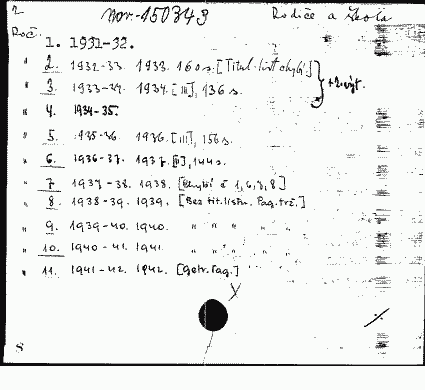 2 Rodiče a škola
Roč.
1. 1931-32.
" 2. 1932-33. 1933. 160 s. [Titul. list chybí.]
" 3. 1933-34. 1934. [III], 136 s. + 2. výt.
" 4. 1934-35.
" 5. 1935-36. 1936. [III], 156 s.
" 6. 1936-37. 1937. 144 s.
" 7. 1937-38. 1938. [Chybí č 1, 6, 7, 8]
" 8. 1938-39. 1939. [Bez tit. listu. Pag. trč.]
" 9. 1939-40. 1940. " " " "
" 10. 1940-41. 1941. " " " "
" 11. 1941-42. 1942. [Getr. Pag.]
X
S